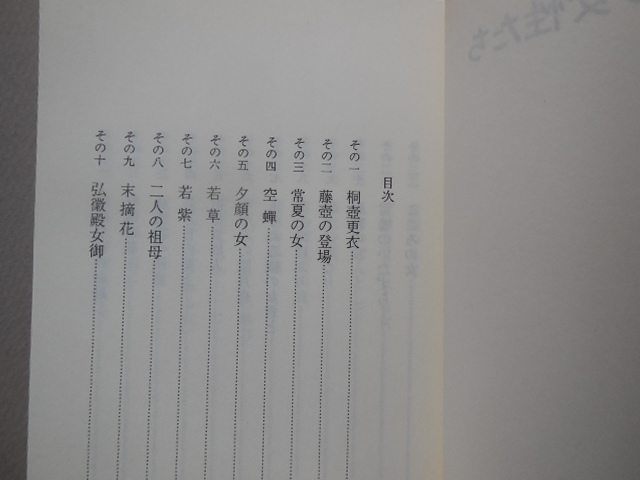 女性たち
目次
その一 桐壺更衣
その二 藤壺の登場
その三 常夏の女
その四 空蟬
その五 夕顔の女
その六 若草
その七 若紫
その八 二人の祖母
その九 末摘花
その十 弘徽殿女御